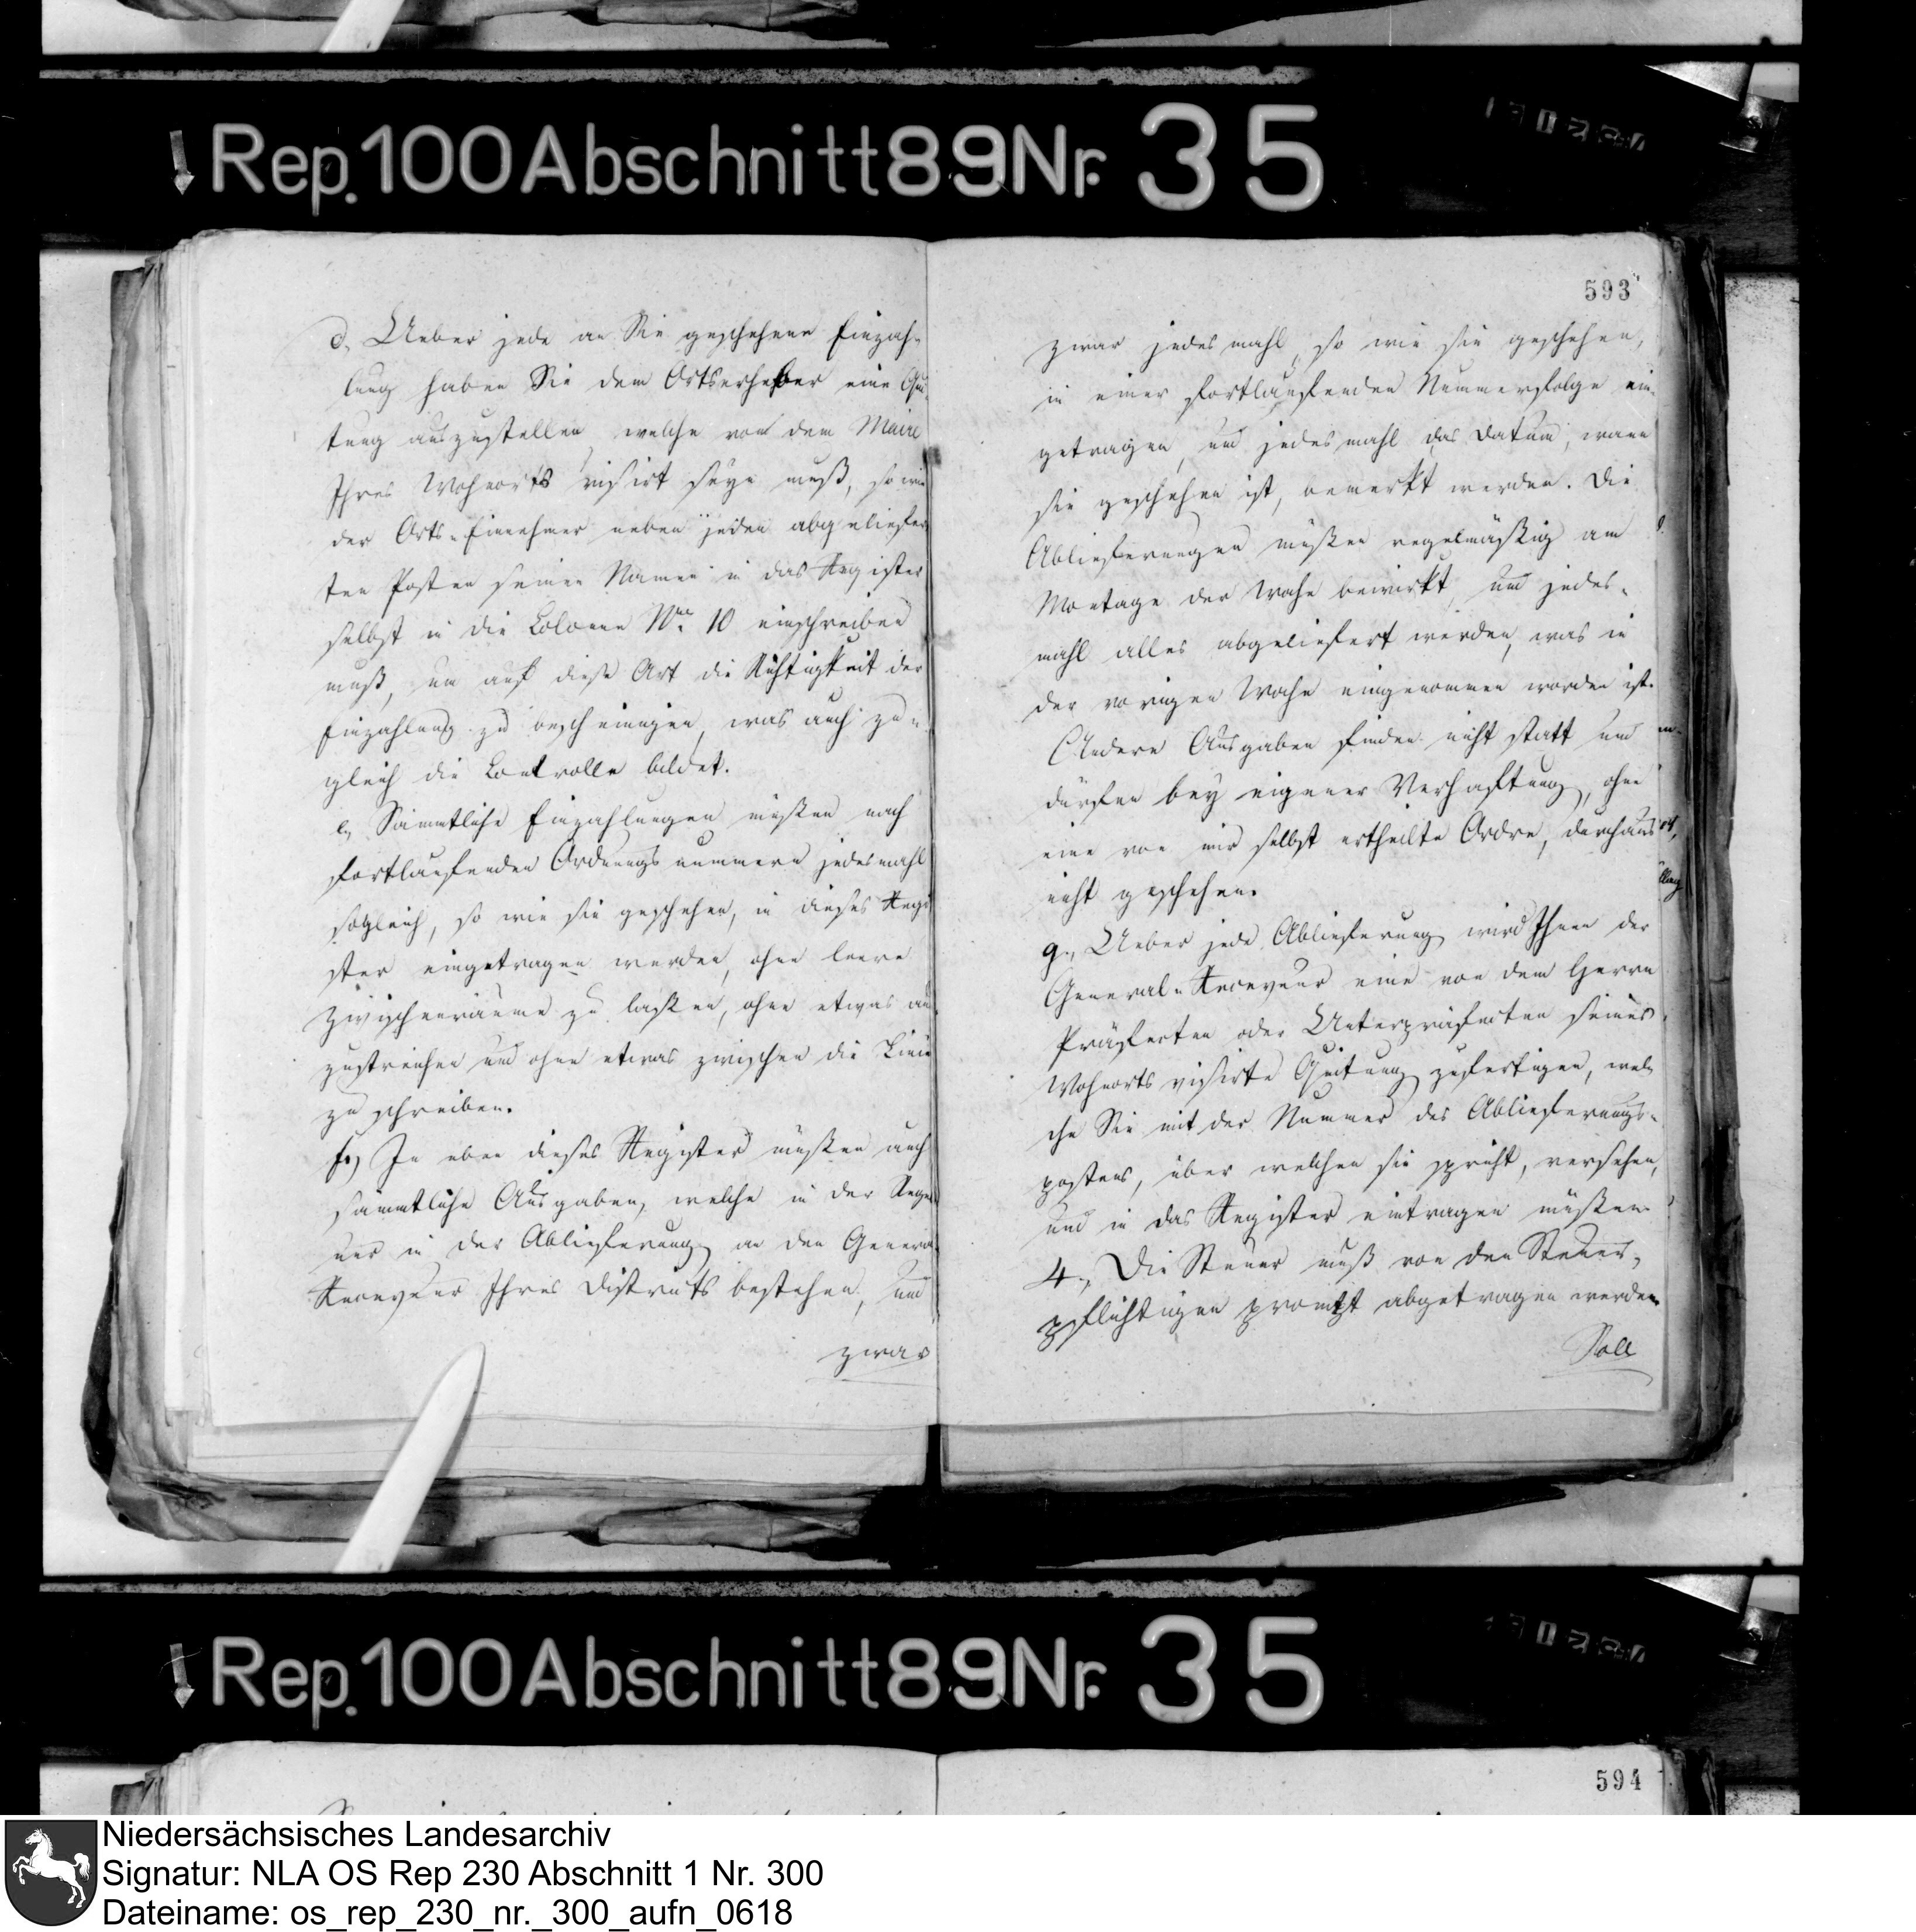 Rep. 100 Abschnitt 89 Nr. 35
d, Ueber jede an Sie geschehene Einzah-
lung haben Sie dem Ortserheber eine Qui-
tung auszustellen welche von dem Maire
Ihres Wohnorts visirt seyn muß, so wie
der Orts-Einnehmer neben jeden abgeliefer
ten Posten seinen Namen in das Register
selbst in die Colonne Nro. 10 einschreiben
muß, um auf diese Art die Richtigkeit der
Einzahlung zu bescheinigen, was auch zu-
gleich die Controlle bildet.
e, Sämmtliche Einzahlungen müßen nach
fortlaufenden Ordnungsnummern jedesmahl
sogleich, so wie sie geschehen, in dieses Regi
ster eingetragen werden, ohne leere
Zwischenräume zu laßen, ohne etwas aus
zustreichen und ohne etwas zwischen die Linien
zu schreiben.
f.) In eben dieses Register müßen auch
sämmtliche Ausgaben, welche in der
nur in der Ablieferung an den General
Receveur Ihres Districts bestehen, und
zwar
593
zwar jedesmahl, so wie sie geschehen,
in einer fortlaufenden Nummerfolge ein-
getragen, und jedesmahl das Datum, wann
sie geschehen ist, bemerkt werden. Die
Ablieferungen müßen regelmäßig am
Montage der Woche bewirkt, und jedes-
mahl alles abgeliefert werden, was in
der vorigen Woche eingenommen worden ist.
Andere Ausgaben finden nicht statt und
dürfen bey eigener Verhaftung, ohne
eine von mir selbst ertheilte Ordre, durchaus
nicht geschehen.
g., Ueber jede Ablieferung wird Ihnen der
General-Receveur eine von dem Herrn
Präfecten oder Unterpräfecten seines
Wohnorts visirte Quitung zufertigen, wel-
che Sie mit der Nummer des Ablieferungs-
postens, über welchen sie spricht, versehen,
und in das Register eintragen müßen.
4., Die Steuer muß von den Steuer-
pflichtigen prompt abgetragen werden.
Soll
Rep. 100 Abschnitt 89 Nr. 35
594
Niedersächsisches Landesarchiv
Signatur: NLA OS Rep 230 Abschnitt 1 Nr. 300
Dateiname: os_rep_230_nr._300_aufn_0618